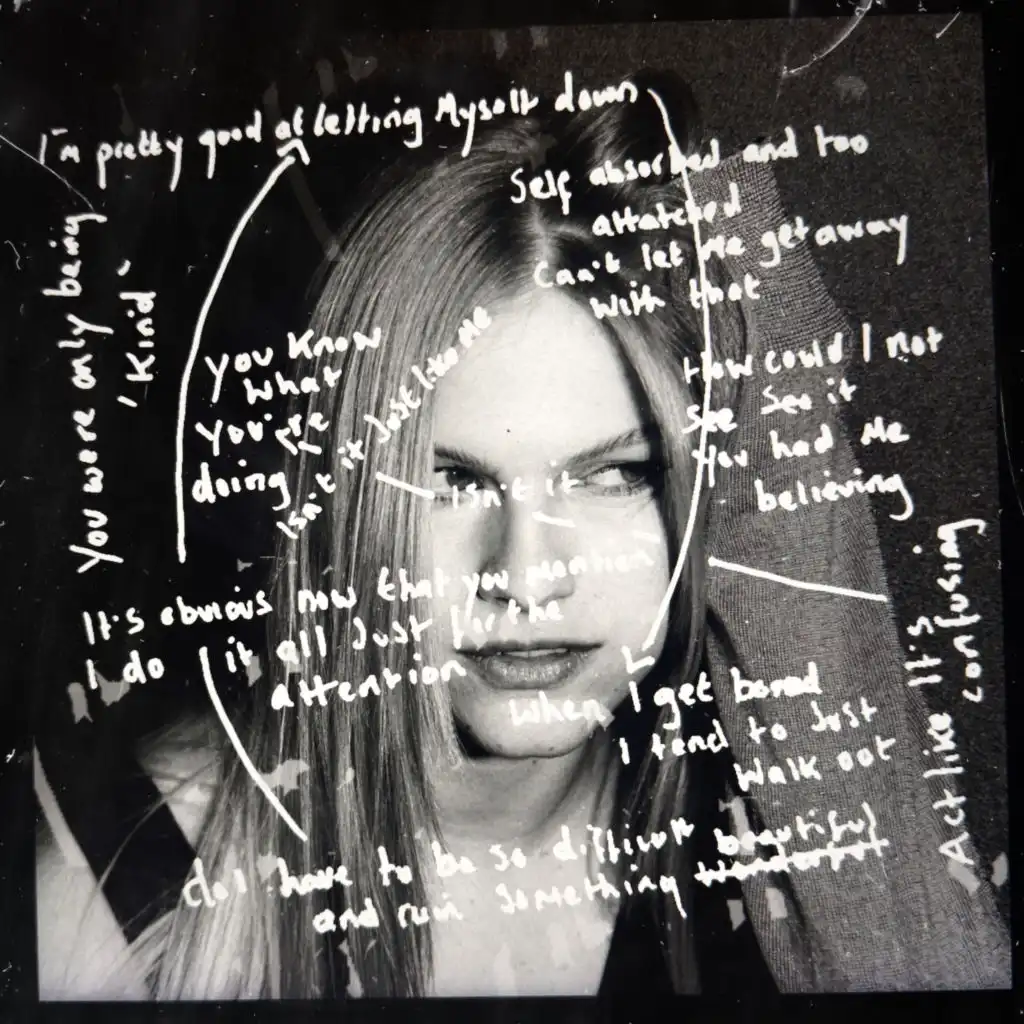 I'm pretty good at letting Myself down
Self absorbed and too
attatched
Can't let me get away
with that
You were only being
'Kind'
You Know
what
You're
doing
Isn't it Just like Me
Isn't it
How could I not
see See it
You had Me
believing
It's obvious now that you mention
I do it all Just for the
attention
when I get bored
I tend to Just
Walk out
Act like It's
confusing
do I have to be so difficult beautiful
and ruin Something wonderful